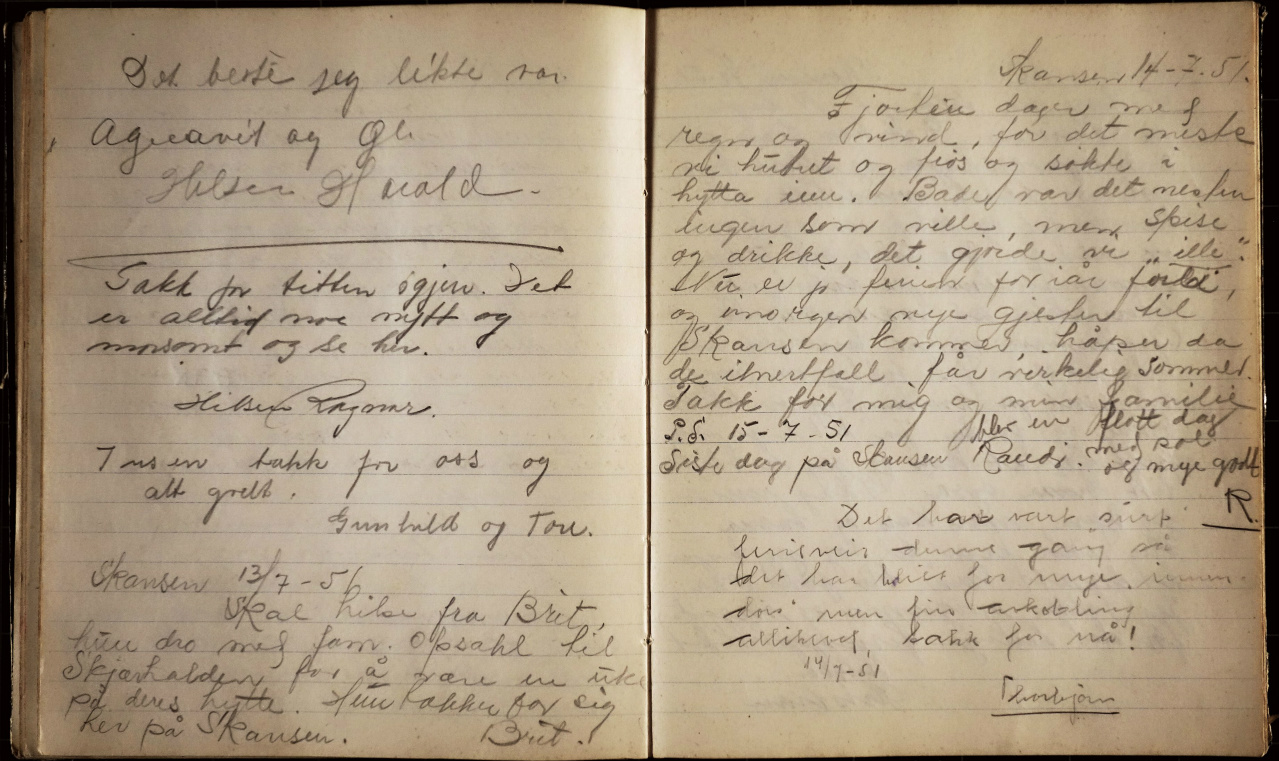 Det beste jeg likte var.
Aqvavit og Øl
Hilsen Harald.
Takk for titten igjen. Det
er alltid noe nytt og
morsomt og se her.
Hilsen Ragnar.
Tusen takk for oss og
alt godt.
Gunhild og Tore.
Skansen 13/7-51
Skal hilse fra Brit,
hun dro med fam. Opsahl til
Skjærhalden for å være en uke
på deres hytte. Hun takker for sig
her på Skansen. Brit.
Skansen 14-7-51.
Fjorten dager med
regn og vind, for det meste
vi hutret og frøs og søkte i
hytta inn. Bade var det nesten
ingen som ville, men spise
og drikke, det gjorde vi „ille".
Nu er jo ferien for iår forbi,
og imorgen nye gjester til
Skansen kommer, håper da
de ihvertfall får virkelig sommer.
Takk for mig og min familie
P.S. 15-7-51 blev en flott dag
Siste dag på Skansen Randi. med sol
og mye godt
R.
Det har vært surt
ferieveir denne gang så
det har blitt for mye innen-
dørs men fin avkobling
allikevel, takk for nå!
14/7-51
Thorbjørn